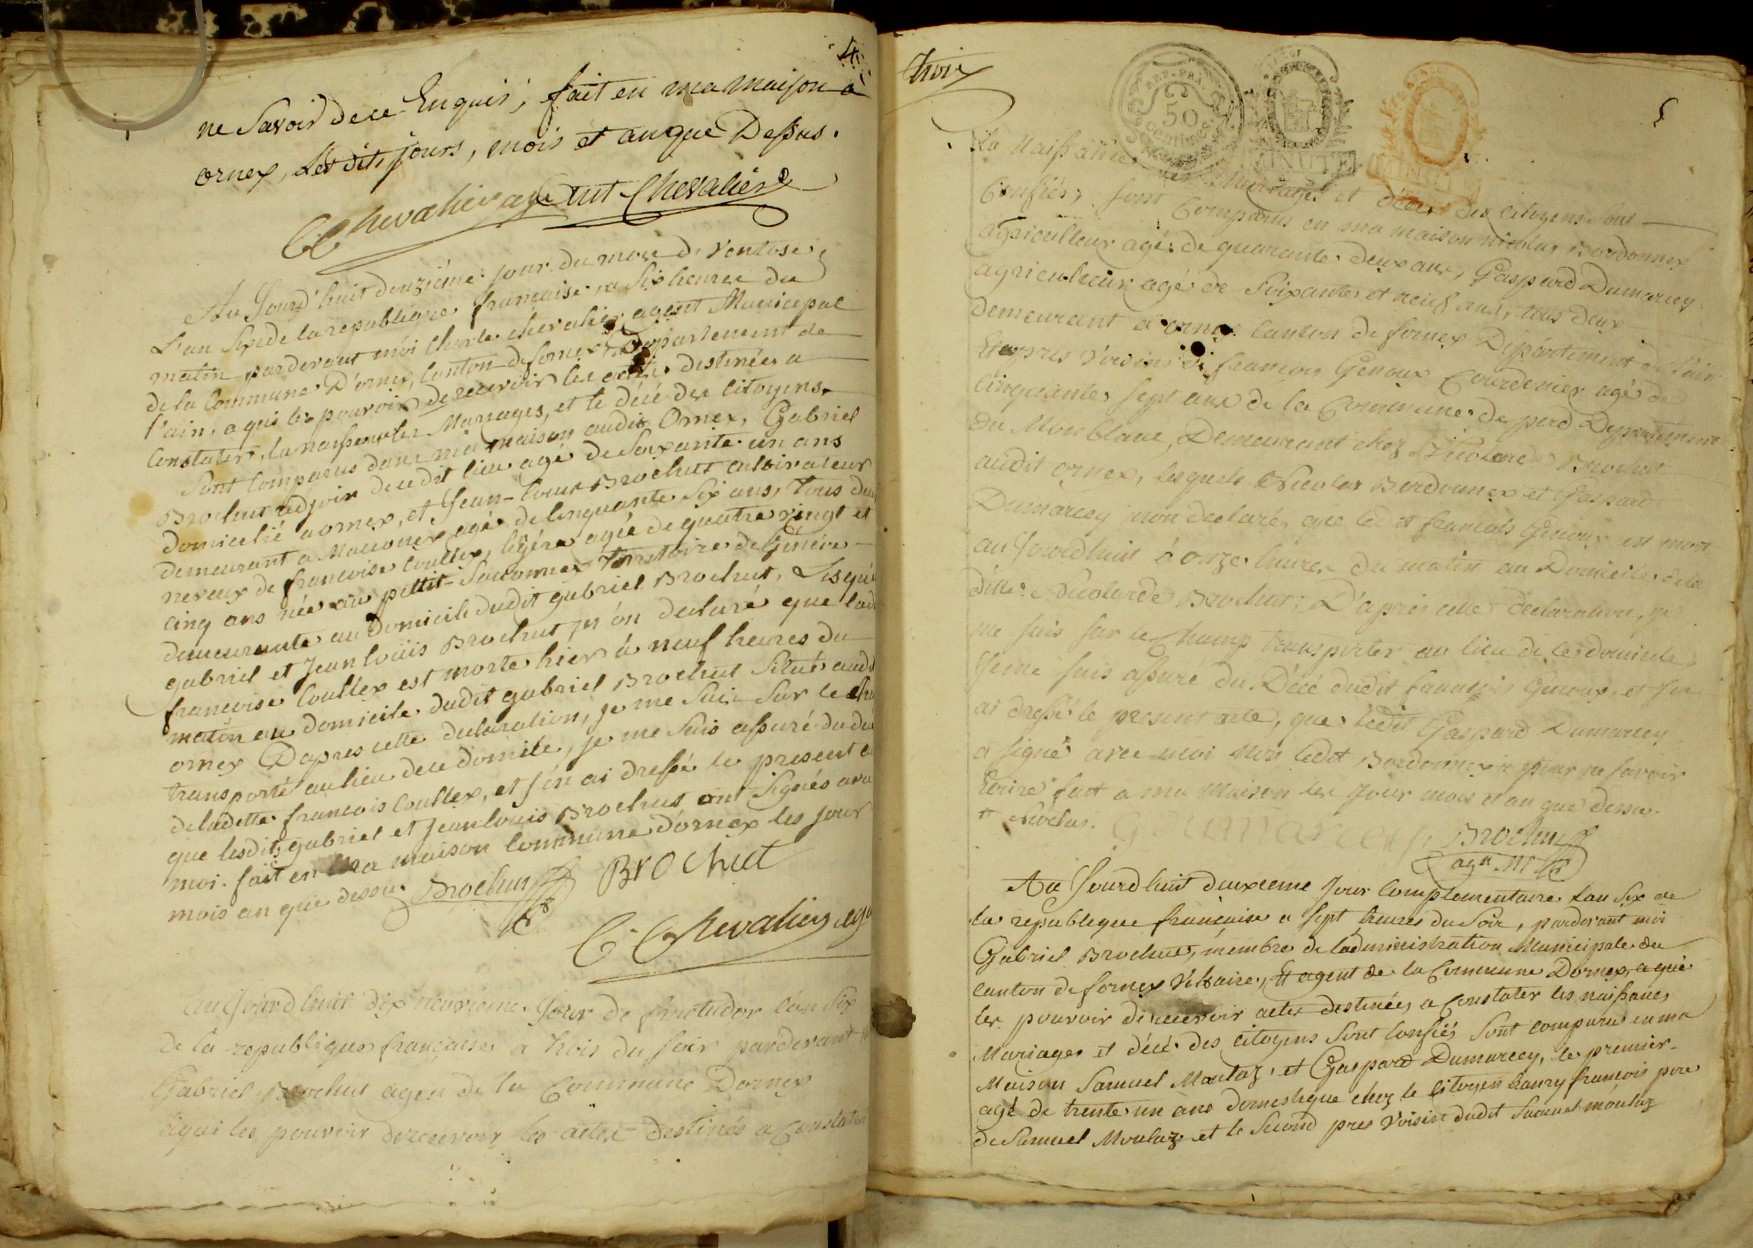 4
ne Savoir de ce Enquis, fait en ma maison a
ornex, Lesdits jours, mois et anque Dessus.
C Chevalier agent Chevalier
Au Jourd'huit douzième jour du mois de ventose,
L'an Six de la republique francaise a Six heures du
matin pardevant moi Charle chevalier agent Municipal
de la Commune D'ornex, Canton de fernex, Département de
l'ain, a qui les pouvoirs de recevoir les actes destinées a
Constater, la naissance les Mariages, et le décé des citoyens
Sont Comparus dans ma maison audit Ornex, Gabriel
Brochut adjoin de cedit lieu agé de Soixante un ans
domicilié a ornex, et Jean-Louis Brochut cultivateur
demeurant a Maconnex agé de Cinquante Six ans, tous deux
neveux de francoise Coullex, agée de quatre vingt et
cinq ans née au pettit Saconnex Territoire de Genéve
demeurante au domicile dudit gabriel Brochut, Lesquels
gabriel et Jean Louis Brochut m'on declaré que lad
francoise Coullex est morte hier à neuf heures du
matin au domicile dudit gabriel Brochut Situé audit
ornex D'apres cette declaration, je me Suis Sur le cha
transporté au lieu de ce domicile, je me Suis assuré du de
de ladette francois Coullex, et j'en ai dressé le present a
que lesdits gabriel et Jean louis Brochut ont Signés ave
moi. fait en ma maison Commune D'ornex les jour
mois an que dessu. Brochut Brochut
C. Chevalier ag
Au Jourd huit dix neuvieme Jour de fructidor l'an Six
de la republique francaise a trois du soir pardevant m
Gabriel Brochut agen de la Commune Dornex
a qui les pouvoir derecevoir les actes destinés a Constater
trois
5
50
centimes
MINUTE
La Naissance
Mariages et deces des citoyens sont
Confiéz, sont Comparus en ma maison nicolas Bordonnex
agriculteur agé de quarante deux ans, Gaspard Dumarcey
agriculteur agé de Soixante et neuf ans, tous deux
Demeurant a ornex Canton de fernex Departement de l'ain
Cinquante sept ans de la Commune de Département
Du Montblanc, Demeurant chez Brochut
audit ornex, Lesquels Nicolas Bordonnex et Gaspard
Dumarcey mon declaré, que ledit francois Genoux est mort
au Jourd huit à onze heures du matin au Domicile de la
Brochut; D'aprés cette Declaration, je
me suis sur le Champ transporter au lieu de ce domicile,
Je me suis assuré du Décé dudit francois Genoux, et j'en
ai dressé le present acte, que ledit Gaspard Dumarcey
a signé avec moi non ledit Bordonnex pour ne savoir
Ecrire fait a ma Maison les Jour mois et an que dessu.
Nicolas. Brochut
agt. Mpl
Au Jourd huit deuxieme Jour Complementaire Lan Six de
la republique francaise a Sept heures du Soir, pardevant moi
Gabriel Brochut, membre de ladministration Municipale du
canton de fernex Voltaire, Et agent de la Commune Dornex, a qui
les pouvoir de recevoir actes destinées a Constater les naissances,
Mariages et décé des citoyens Sont Confiés, Sont comparu en ma
Maison Samuel Moulaz et Gaspard Dumarcey, le premier
agé de trente un ans domestique chez le Citoyen hanry francois pere
de Samuel Moulaz et le Second pres Voisin dudit Samuel moulaz